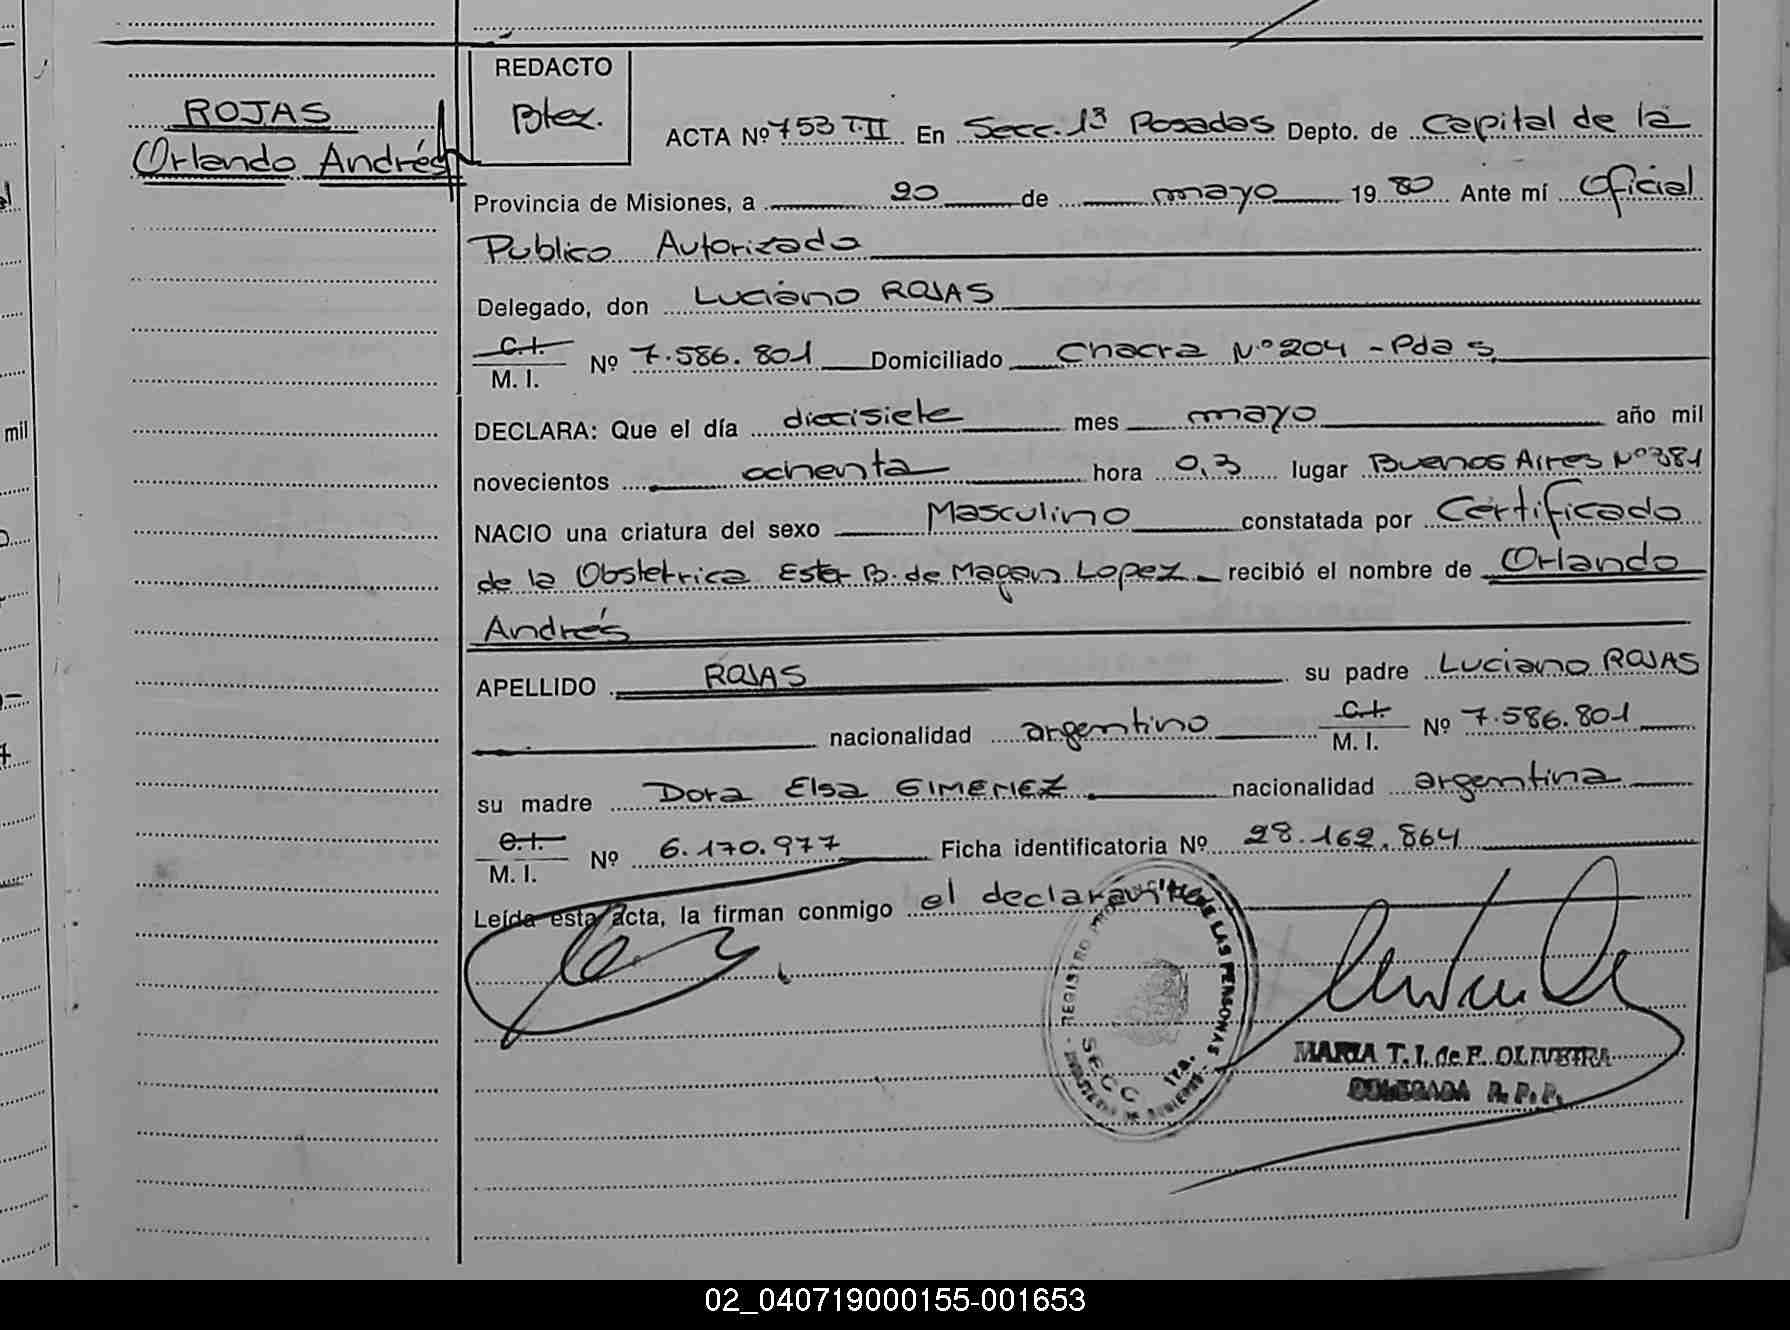 REDACTO
Btez.
ROJAS
Orlando Andrés
ACTA Nº 753 T.II En Secc. 1ª Posadas Depto. de Capital de la
Provincia de Misiones, a 20 de mayo 1980 Ante mí Oficial
Publico Autorizado
Delegado, don Luciano ROJAS
C.I.
M. I. Nº 7.586.801 Domiciliado Chacra Nº 204 - Pdas
DECLARA: Que el día diecisiete mes mayo año mil
novecientos ochenta hora 0,3 lugar Buenos Aires Nº 381
NACIO una criatura del sexo Masculino constatada por Certificado
de la Obstetrica Ester B. de Magan Lopez recibió el nombre de Orlando
Andrés
APELLIDO ROJAS su padre Luciano ROJAS
nacionalidad argentino C.I. M. I. Nº 7.586.801
su madre Dora Elsa GIMENEZ nacionalidad argentina
C.I.
M. I. Nº 6.170.977 Ficha identificatoria Nº 28.162.864
Leída esta acta, la firman conmigo el declarante
REGISTRO DE LAS PERSONAS
SECC 1ra.
MARIA T. I. de F. OLIVEIRA
DELEGADA R. P. P.
mil
02_040719000155-001653